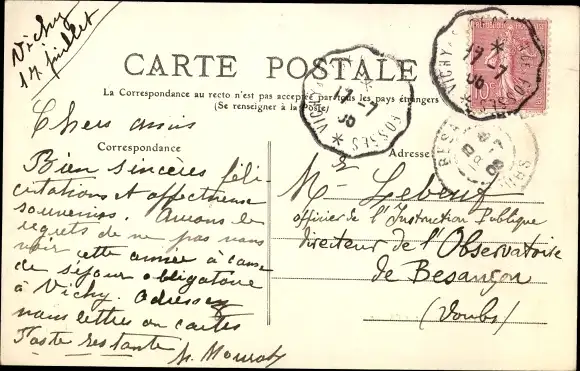 Vichy
17 juillet
CARTE POSTALE
La Correspondance au recto n'est pas acceptée par tous les pays étrangers
(Se renseigner à la Poste)
Correspondance
Adresse
Chers amis
Bien sincères féli-
citations et affectueux
souvenirs. Avons le
regrets de ne pas vous
voir cette année à cause
de séjour obligatoire
à Vichy. Adressez
nous lettres ou cartes
Poste restante
Mr Lebeuf
officier de l'Instruction Publique
Directeur de l'Observatoire
de Besançon
(Doubs)
VICHY
FOSSES
17 -7
06
VICHY
FOSSES
17 -7
06
10